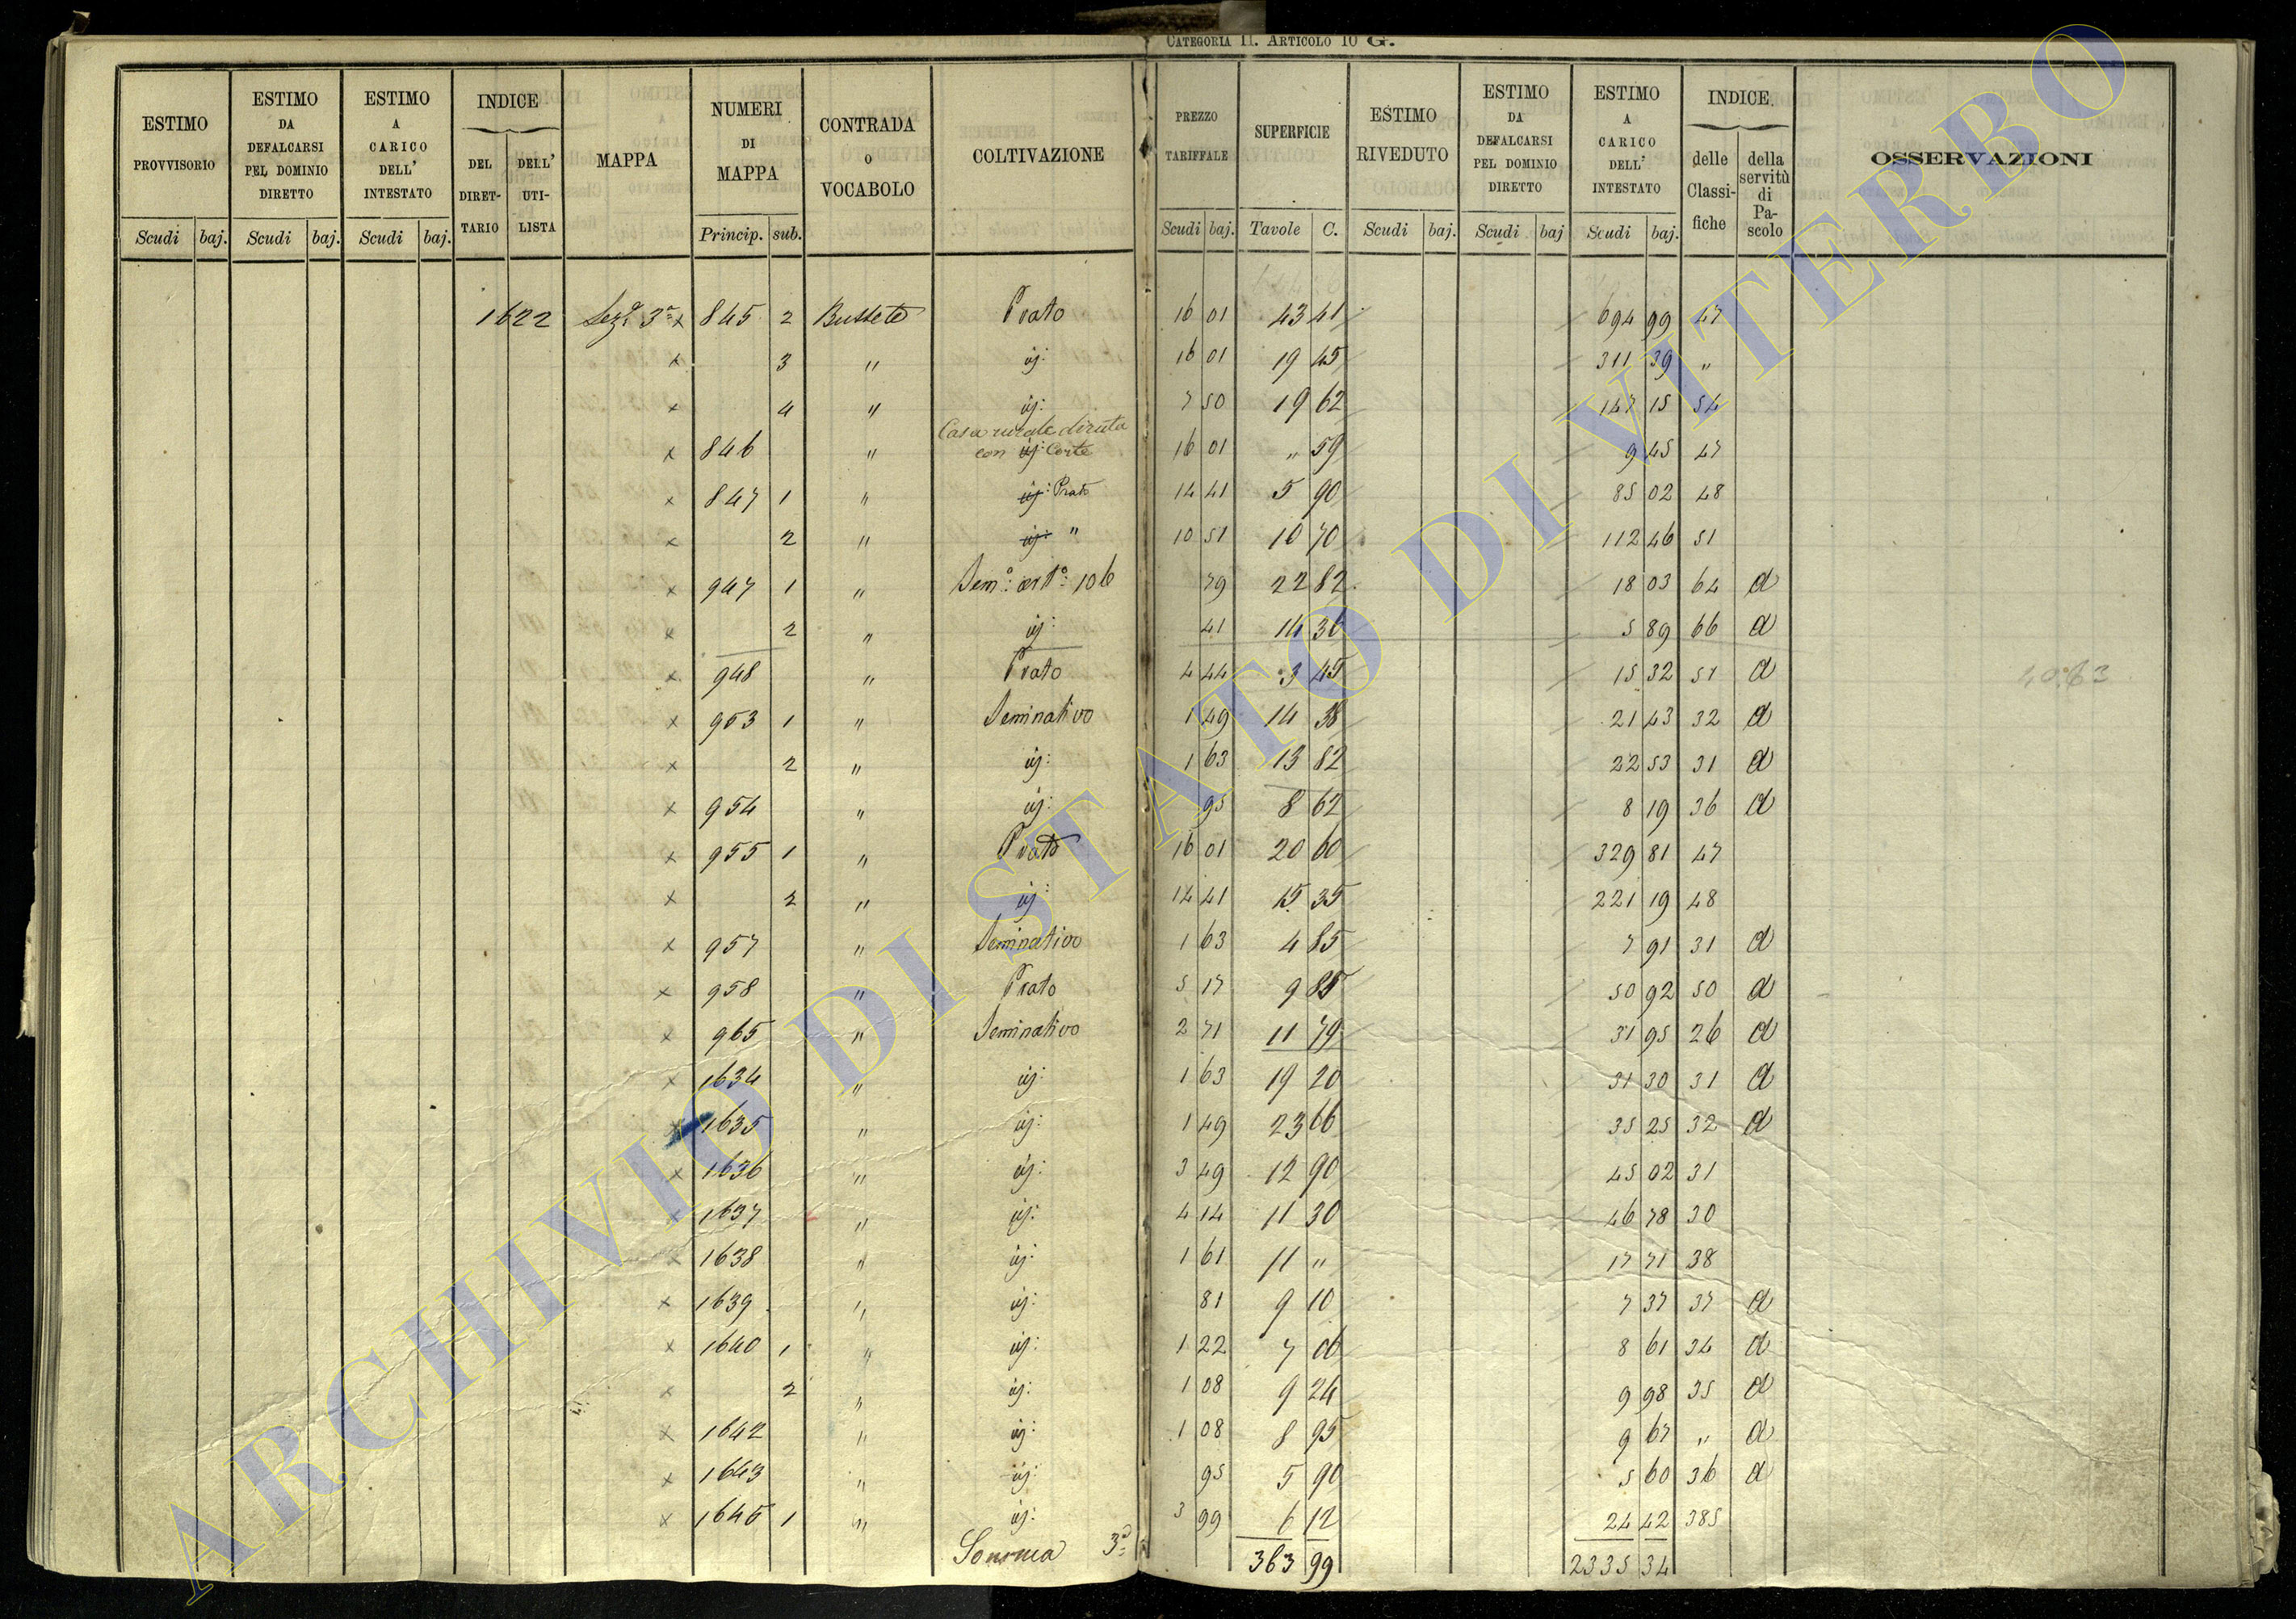 CATEGORIA II. ARTICOLO 10 G.
ESTIMO PROVVISORIO Scudi baj.
ESTIMO DA DEFALCARSI PEL DOMINIO DIRETTO Scudi baj.
ESTIMO A CARICO DELL' INTESTATO Scudi baj.
INDICE DEL DIRETTARIO DELL' UTILISTA
MAPPA
NUMERI DI MAPPA Princip. sub.
CONTRADA O VOCABOLO
COLTIVAZIONE
PREZZO TARIFFALE Scudi baj.
SUPERFICIE Tavole C.
ESTIMO RIVEDUTO Scudi baj.
ESTIMO DA DEFALCARSI PEL DOMINIO DIRETTO Scudi baj
ESTIMO A CARICO DELL' INTESTATO Scudi baj.
INDICE delle Classifiche della servitù di Pascolo
OSSERVAZIONI
1622 Sez.e 3a x 845 2 Bussete Prato 16 01 43 41 694 99 47
x 3 " ij: 16 01 19 45 311 39 "
x 4 " ij: 7 50 19 62 147 15 54
Casa rurale diruta
x 846 " con ij: Corte 16 01 " 59 9 45 47
x 847 1 " ij: Prato 14 41 5 90 85 02 48
x 2 " ij: " 10 51 10 70 112 46 51
x 947 1 " Sem.o: art.o: 106 79 22 82 18 03 64 a
x 2 " ij: 41 14 36 5 89 66 a
x 948 " Prato 4 44 3 45 15 32 51 a
x 953 1 " Seminativo 1 49 14 38 21 43 32 a
x 2 " ij: 1 63 13 82 22 53 31 a
x 954 " ij: 95 8 62 8 19 36 a
x 955 1 " Prato 16 01 20 60 329 81 47
x 2 " ij: 14 41 15 35 221 19 48
x 957 " Seminativo 1 63 4 85 7 91 31 a
x 958 " Prato 5 17 9 85 50 92 50 a
x 965 " Seminativo 2 71 11 79 31 95 26 a
x 1634 " ij: 1 63 19 20 31 30 31 a
x 1635 " ij: 1 49 23 66 35 25 32 a
x 1636 " ij: 3 49 12 90 45 02 31
x 1637 " ij: 4 14 11 30 46 78 30
x 1638 " ij: 1 61 11 " 17 71 38
x 1639 " ij: 81 9 10 7 37 37 a
x 1640 1 " ij: 1 22 7 06 8 61 34 a
x 2 " ij: 1 08 9 24 9 98 35 a
x 1642 " ij: 1 08 8 95 9 67 " a
x 1643 " ij: 95 5 90 5 60 36 a
x 1645 1 " ij: 3 99 6 12 24 42 385
Somma 3a 363 99 2335 34
ARCHIVIO DI STATO DI VITERBO